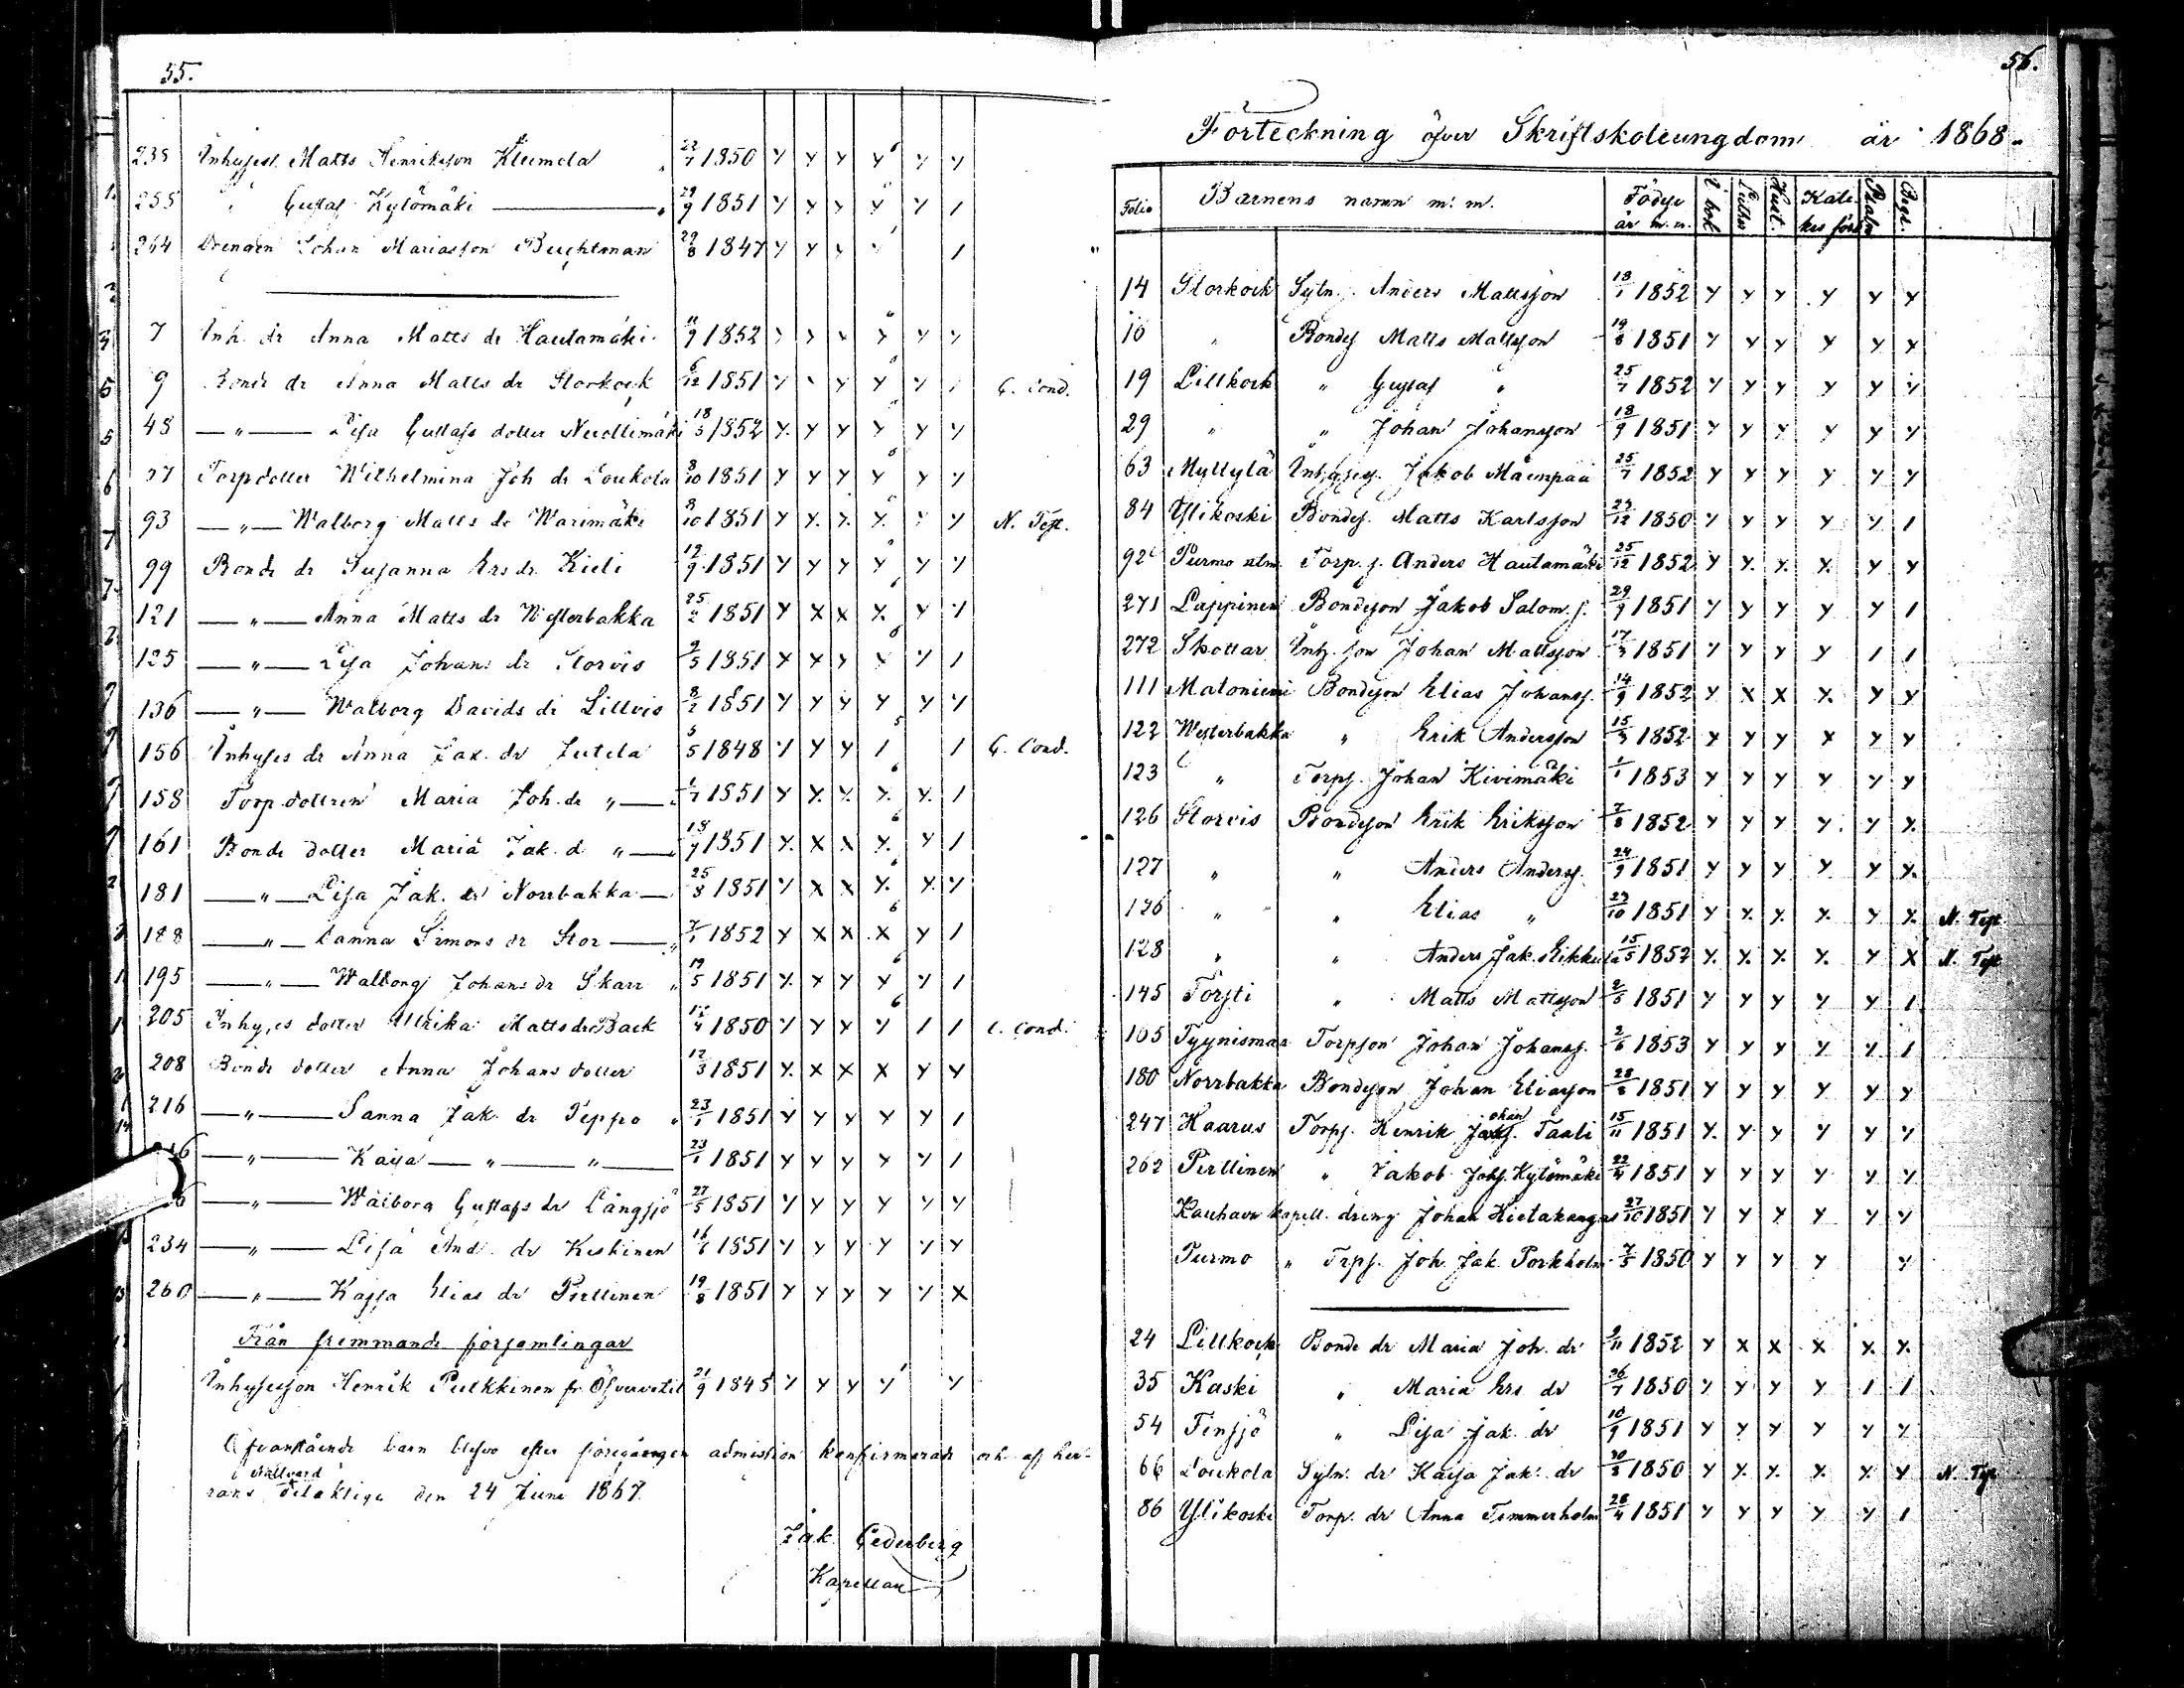 55.
235 Inhyses. Matts Henriksson Kleemola 22/7 1850 y y y y 6 y y
255 " Gustaf Kytömäki 29/9 1851 y y y y y 1
264 Drengen Johan Mariasson Buchtman 29/8 1847 y y y 1
7 Inh. dr Anna Matts dr Hautamäki 11/9 1852 y y y y y
9 Bonde dr Anna Matts dr Storkock 6/12 1851 y y y y y G. Cond.
48 —"— Lisa Gustafs dotter 18/5 1852 y. y y y y y
77 Torpdotter Wilhelmina Joh dr Loukola 8/10 1851 y y y y y y
93 —"— Walborg Matts dr Warimäki 8/10 1851 y y. y. y. y y N. Test.
99 Bonde dr Susanna Ers dr. Kieli 12/9 1851 y y y y y y
121 —"— Anna Matts dr Westerbakka 25/2 1851 y x x y. y y
125 —"— Lisa Johans dr Storvis 9/5 1851 y x y y y 1
136 —"— Walborg Davids dr Lillvis 8/2 1851 y y y y y y
156 Inhyses dr Anna Jak. dr Jutila 5/5 1848 y y y 1 1 G. Cond.
158 Torp. dottren Maria Joh. dr "— 1/7 1851 y y. y. y. y. 1
161 Bonde dotter Maria Jak. d "— 18/9 1851 y. x x y. y 1
181 —"— Lisa Jak. dr Norrbakka — 25/8 1851 y x x y. y. y
188 —"— Sanna Simons dr Stor — " 7/1 1852 y x x x y 1
195 —"— Walborg Johans dr Skarr " 19/5 1851 y. x y y y 1
205 Inhyses dotter Ulrika Matts dr Back 12/4 1850 y y x y 1 1 G. Cond.
208 Bonde dotter Anna Johans dotter 12/3 1851 y. x x x y y
216 —"— Sanna Jak. dr Peppo " 23/1 1851 y y y y y 1
—"— Kaisa —"— "— 23/1 1851 y y y y y 1
—"— Walborg Gustafs dr Långsjö 27/5 1851 y y y y y y
234 —"— Lisa And. dr Keskinen 16/6 1851 y y y y y y
260 —"— Kajsa Elias dr Pirttinen 19/8 1851 y y y y y x
Från fremmande församlingar
Inhysesson Henrik Pulkkinen fr. Öfvervetil 21/9 1845 y y y y y
Ofvanstående barn blefvo efter föregången admission konfirmerade och af Her-
rans Nattvard delaktige den 24 Juni 1867.
Jak. Cederberg
Kapellan
56.
Förteckning öfver Skriftskoleungdom år 1868.
Folio Barnens namn m. m. Födse år m. m. i bok Luthe Hust. Kateches förs. Psalm Begr.
14 Storkock Sytn. s. Anders Mattsson 18/1 1852 y y y y y y
10 " Bondes Matts Mattsson 19/8 1851 y y y y y y
19 Lillkock " Gustaf " 25/7 1852 y y y y y y
29 " " Johan Johansson 18/9 1851 y y y y y y
63 Myllylä Inhyses. Jakob Mäenpää 25/7 1852 y y y y y y
84 Ylikoski Bondes. Matts Karlsson 27/12 1850 y y y y y 1
92 Purmo utm. Torp. s. Anders Hautamäki 25/12 1852 y y. y. y. y y
271 Lappinen Bondeson Jakob Salom. s. 29/9 1851 y y y y y 1
272 Skottar Inh. son Johan Mattsson 17/3 1851 y y y y 1 1
111 Matoniemi Bondeson Elias Johanss. 14/9 1852 y x x x. y y
122 Westerbakka " Erik Andersson 15/3 1852 y y y x y y
123 " Torps. Johan Kivimäki 1/1 1853 y y y y y y
126 Storvis Bondeson Erik Eriksson 7/8 1852 y y y y. y y.
127 " " Anders Anderss. 24/9 1851 y y y y y y.
126 " " Elias " 23/10 1851 y y. y. y. y y. N. Test
128 " " Anders Jak. s Eikkula 15/5 1852 y. y. y. y. y x N. Test
145 Torsti " Matts Mattsson 2/5 1851 y y y y y 1
165 Tyynismaa Torpson Johan Johanss. 2/6 1853 y y y y y 1
180 Norrbakka Bondeson Johan Eliasson 28/6 1851 y y y y y y
247 Haarus Torps. Henrik Johans. Taali 15/11 1851 y. y y y y y
262 Pirttinen " Jakob Johs. Kytömäki 22/4 1851 y y y y y y
Kauhava kapell. dreng Johan Hietakangas 27/10 1851 y y y y y y
Purmo " Trps. Joh. Jak. Porkholm 7/5 1850 y y y y y
24 Lillkock Bonde dr Maria Joh. dr 9/11 1852 y x x x y. y.
35 Kaski " Maria Ers dr 26/7 1850 y y y y 1 1
54 Finsjö " Lisa Jak. dr 10/9 1851 y y y y y y
66 Loukola Sytn. dr Kaisa Jak. dr 30/3 1850 y y. y. y. y. y N. Test
86 Ylikoski Torp. dr Anna Timmerholm 28/4 1851 y y y y y 1